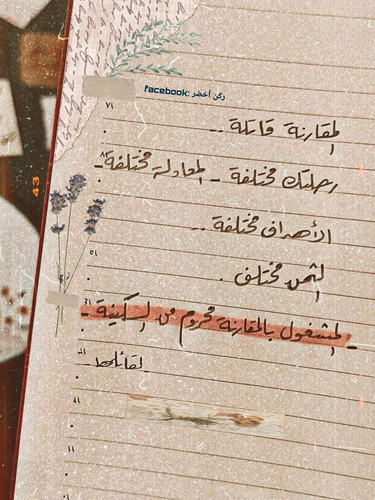 facebook: ركن أخضر
المقارنة قاتلة ..
رحلتك مختلفة - المعادلة مختلفة -
الأهداف مختلفة ..
الثمن مختلف .
- المشغول بالمقارنة محروم من السكينة -
لقائلها -
43